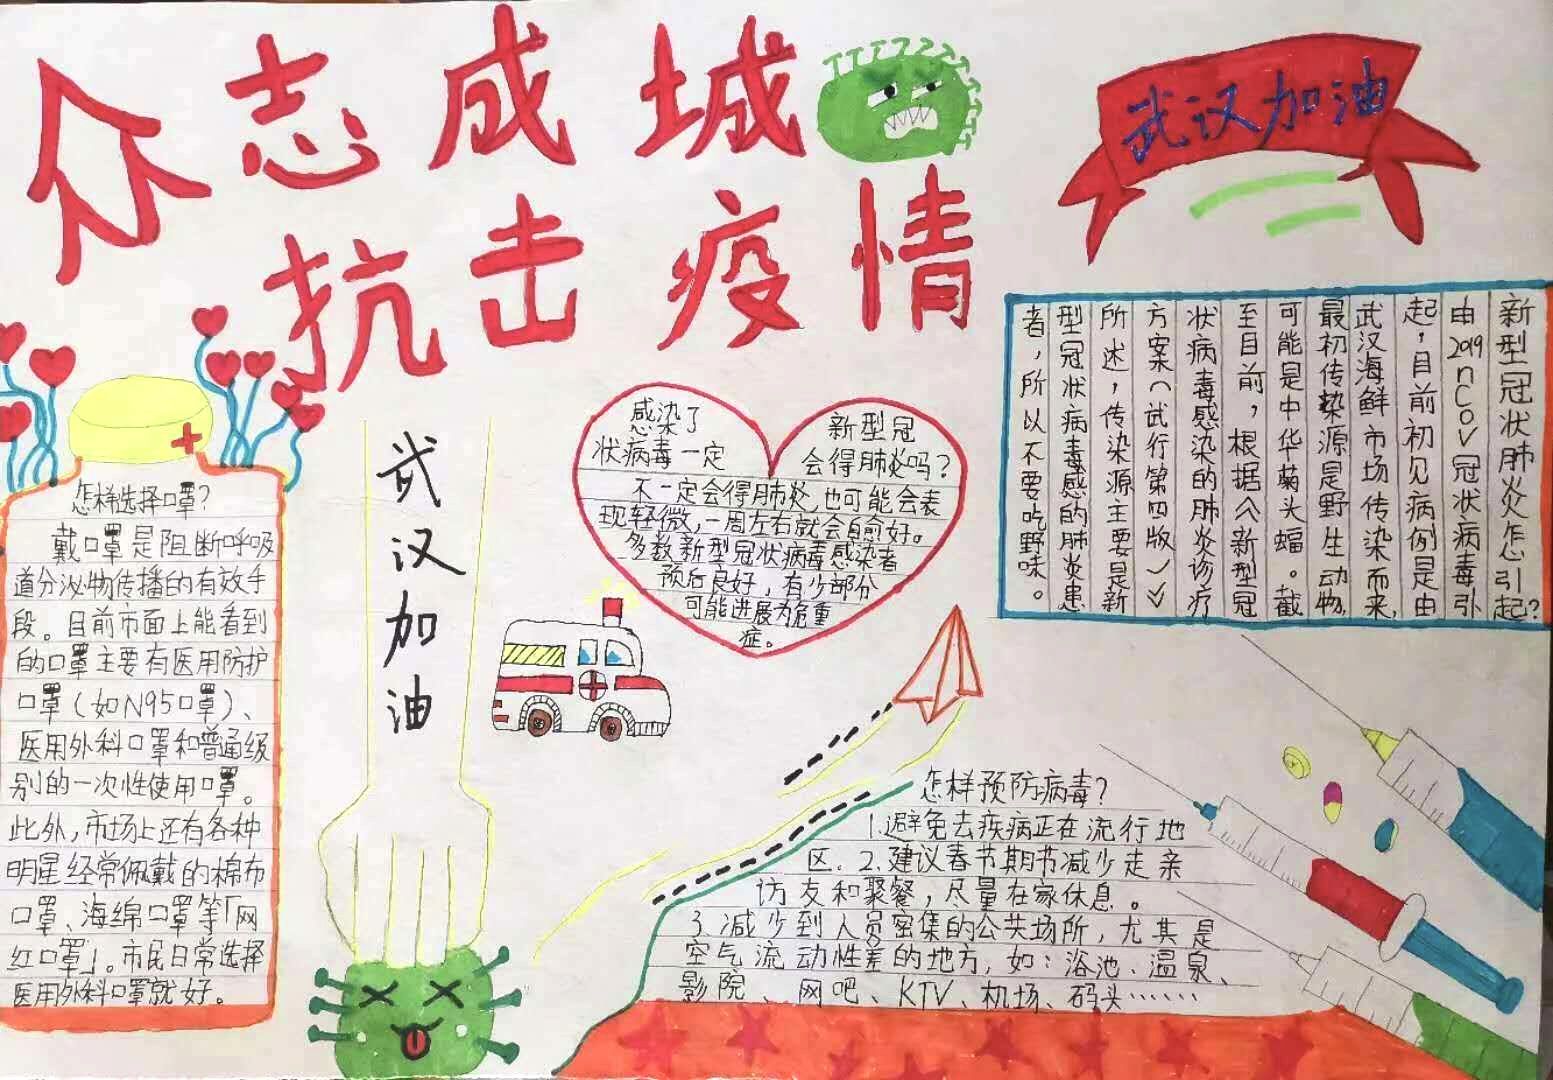 众志成城
抗击疫情
武汉加油
新型冠状肺炎怎引起?
由2019nCoV冠状病毒引
起,目前初见病例是由
武汉海鲜市场传染而来,
最初传染源是野生动物,
可能是中华菊头蝠。截
至目前,根据《新型冠
状病毒感染的肺炎诊疗
方案(试行第四版)》
所述,传染源主要是新
型冠状病毒感的肺炎患
者,所以不要吃野味。
感染了新型冠
状病毒一定会得肺炎吗?
不一定会得肺炎,也可能会表
现轻微,一周左右就会自愈好。
多数新型冠状病毒感染者
预后良好,有少部分
可能进展为危重
症。
武汉加油
怎样选择口罩?
戴口罩是阻断呼吸
道分泌物传播的有效手
段。目前市面上能看到
的口罩主要有医用防护
口罩(如N95口罩)、
医用外科口罩和普通级
别的一次性使用口罩。
此外,市场上还有各种
明星经常佩戴的棉布
口罩、海绵口罩等「网
红口罩」。市民日常选择
医用外科口罩就好。
怎样预防病毒?
1.避免去疾病正在流行地
区。2.建议春节期节减少走亲
访友和聚餐,尽量在家休息。
3.减少到人员密集的公共场所,尤其是
空气流动性差的地方,如:浴池、温泉、
影院、网吧、KTV、机场、码头……